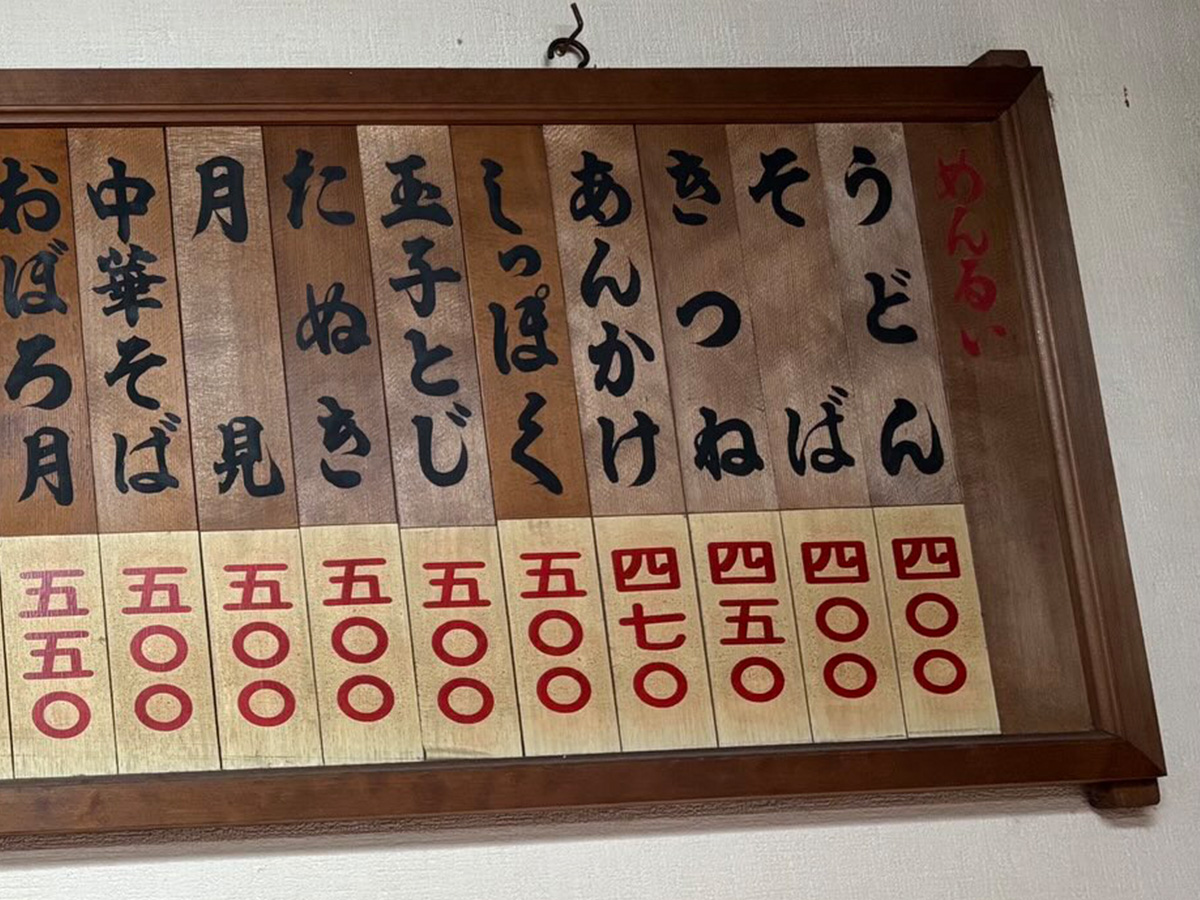 めんるい
うどん
四〇〇
そば
四〇〇
きつね
四五〇
あんかけ
四七〇
しっぽく
五〇〇
玉子とじ
五〇〇
たぬき
五〇〇
月見
五〇〇
中華そば
五〇〇
おぼろ月
五五〇